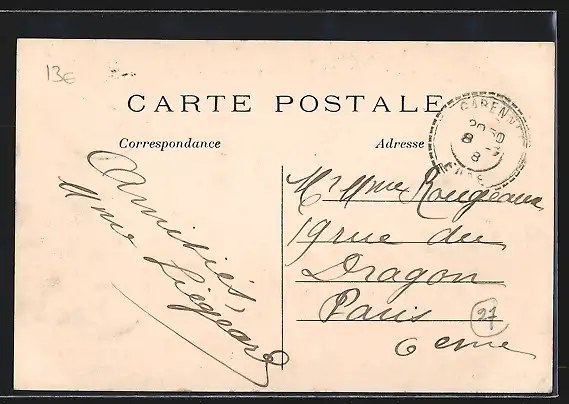 13€
CARTE POSTALE
Correspondance
Adresse
20 50
8
8
Amitiés,
Mme Liégeard
Mr Mme Rougeaux
19 rue du
Dragon
Paris
6 eme
27